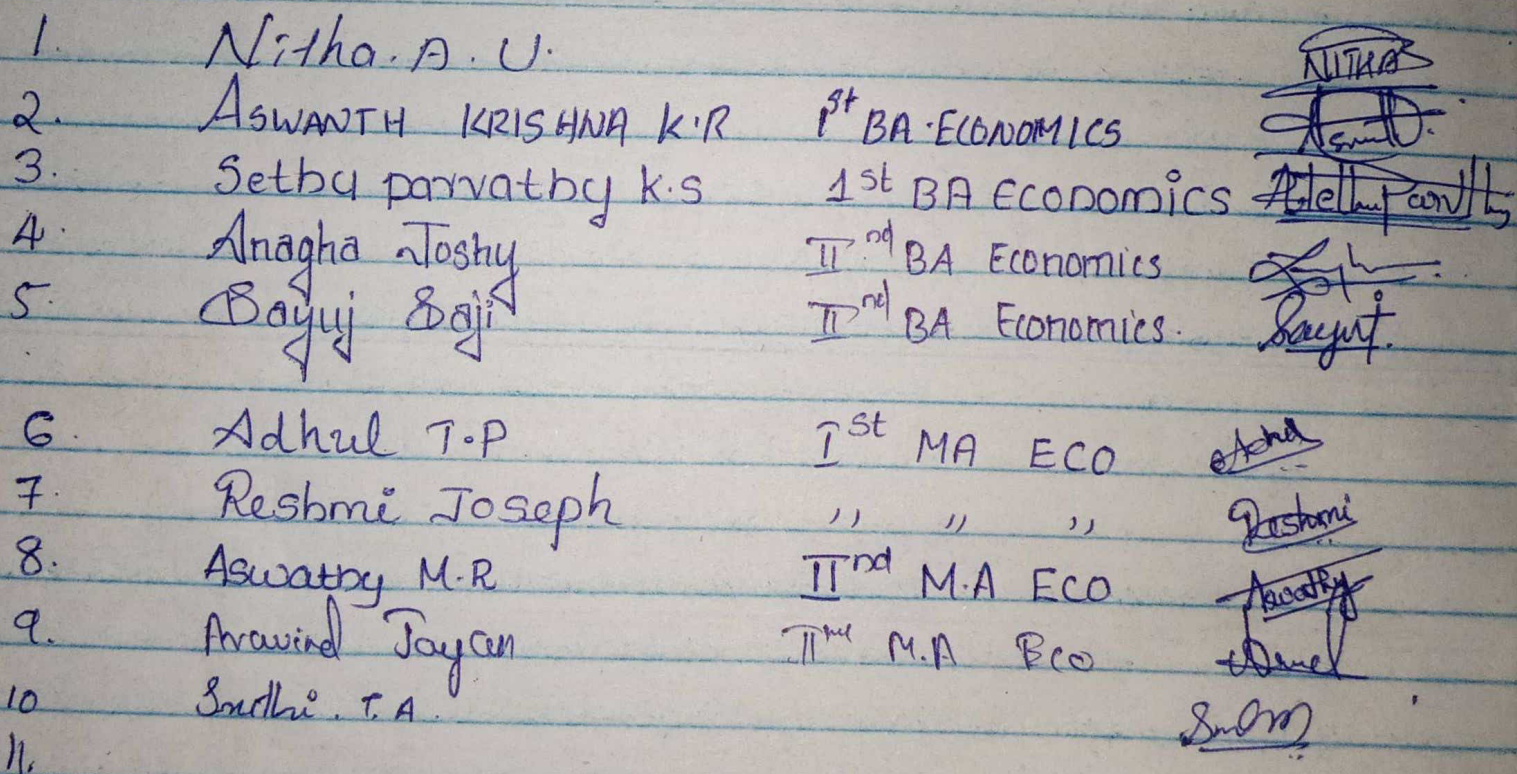 1. Nitha. A. U. NITHA
2. ASWANTH KRISHNA K.R 1st BA.ECONOMICS
3. Sethu parvathy K.S 1st BA Economics
4. Anagha Joshy IInd BA Economics
5. Sayuj Saji IInd BA Economics. Sayuj.
6. Adhul T.P Ist MA ECO
7. Reshmi Joseph ,, ,, ,, Reshmi
8. Aswathy M.R IInd M.A ECO Aswathy
9. Aravind Jayan IInd M.A Eco
10 T.A.
11.